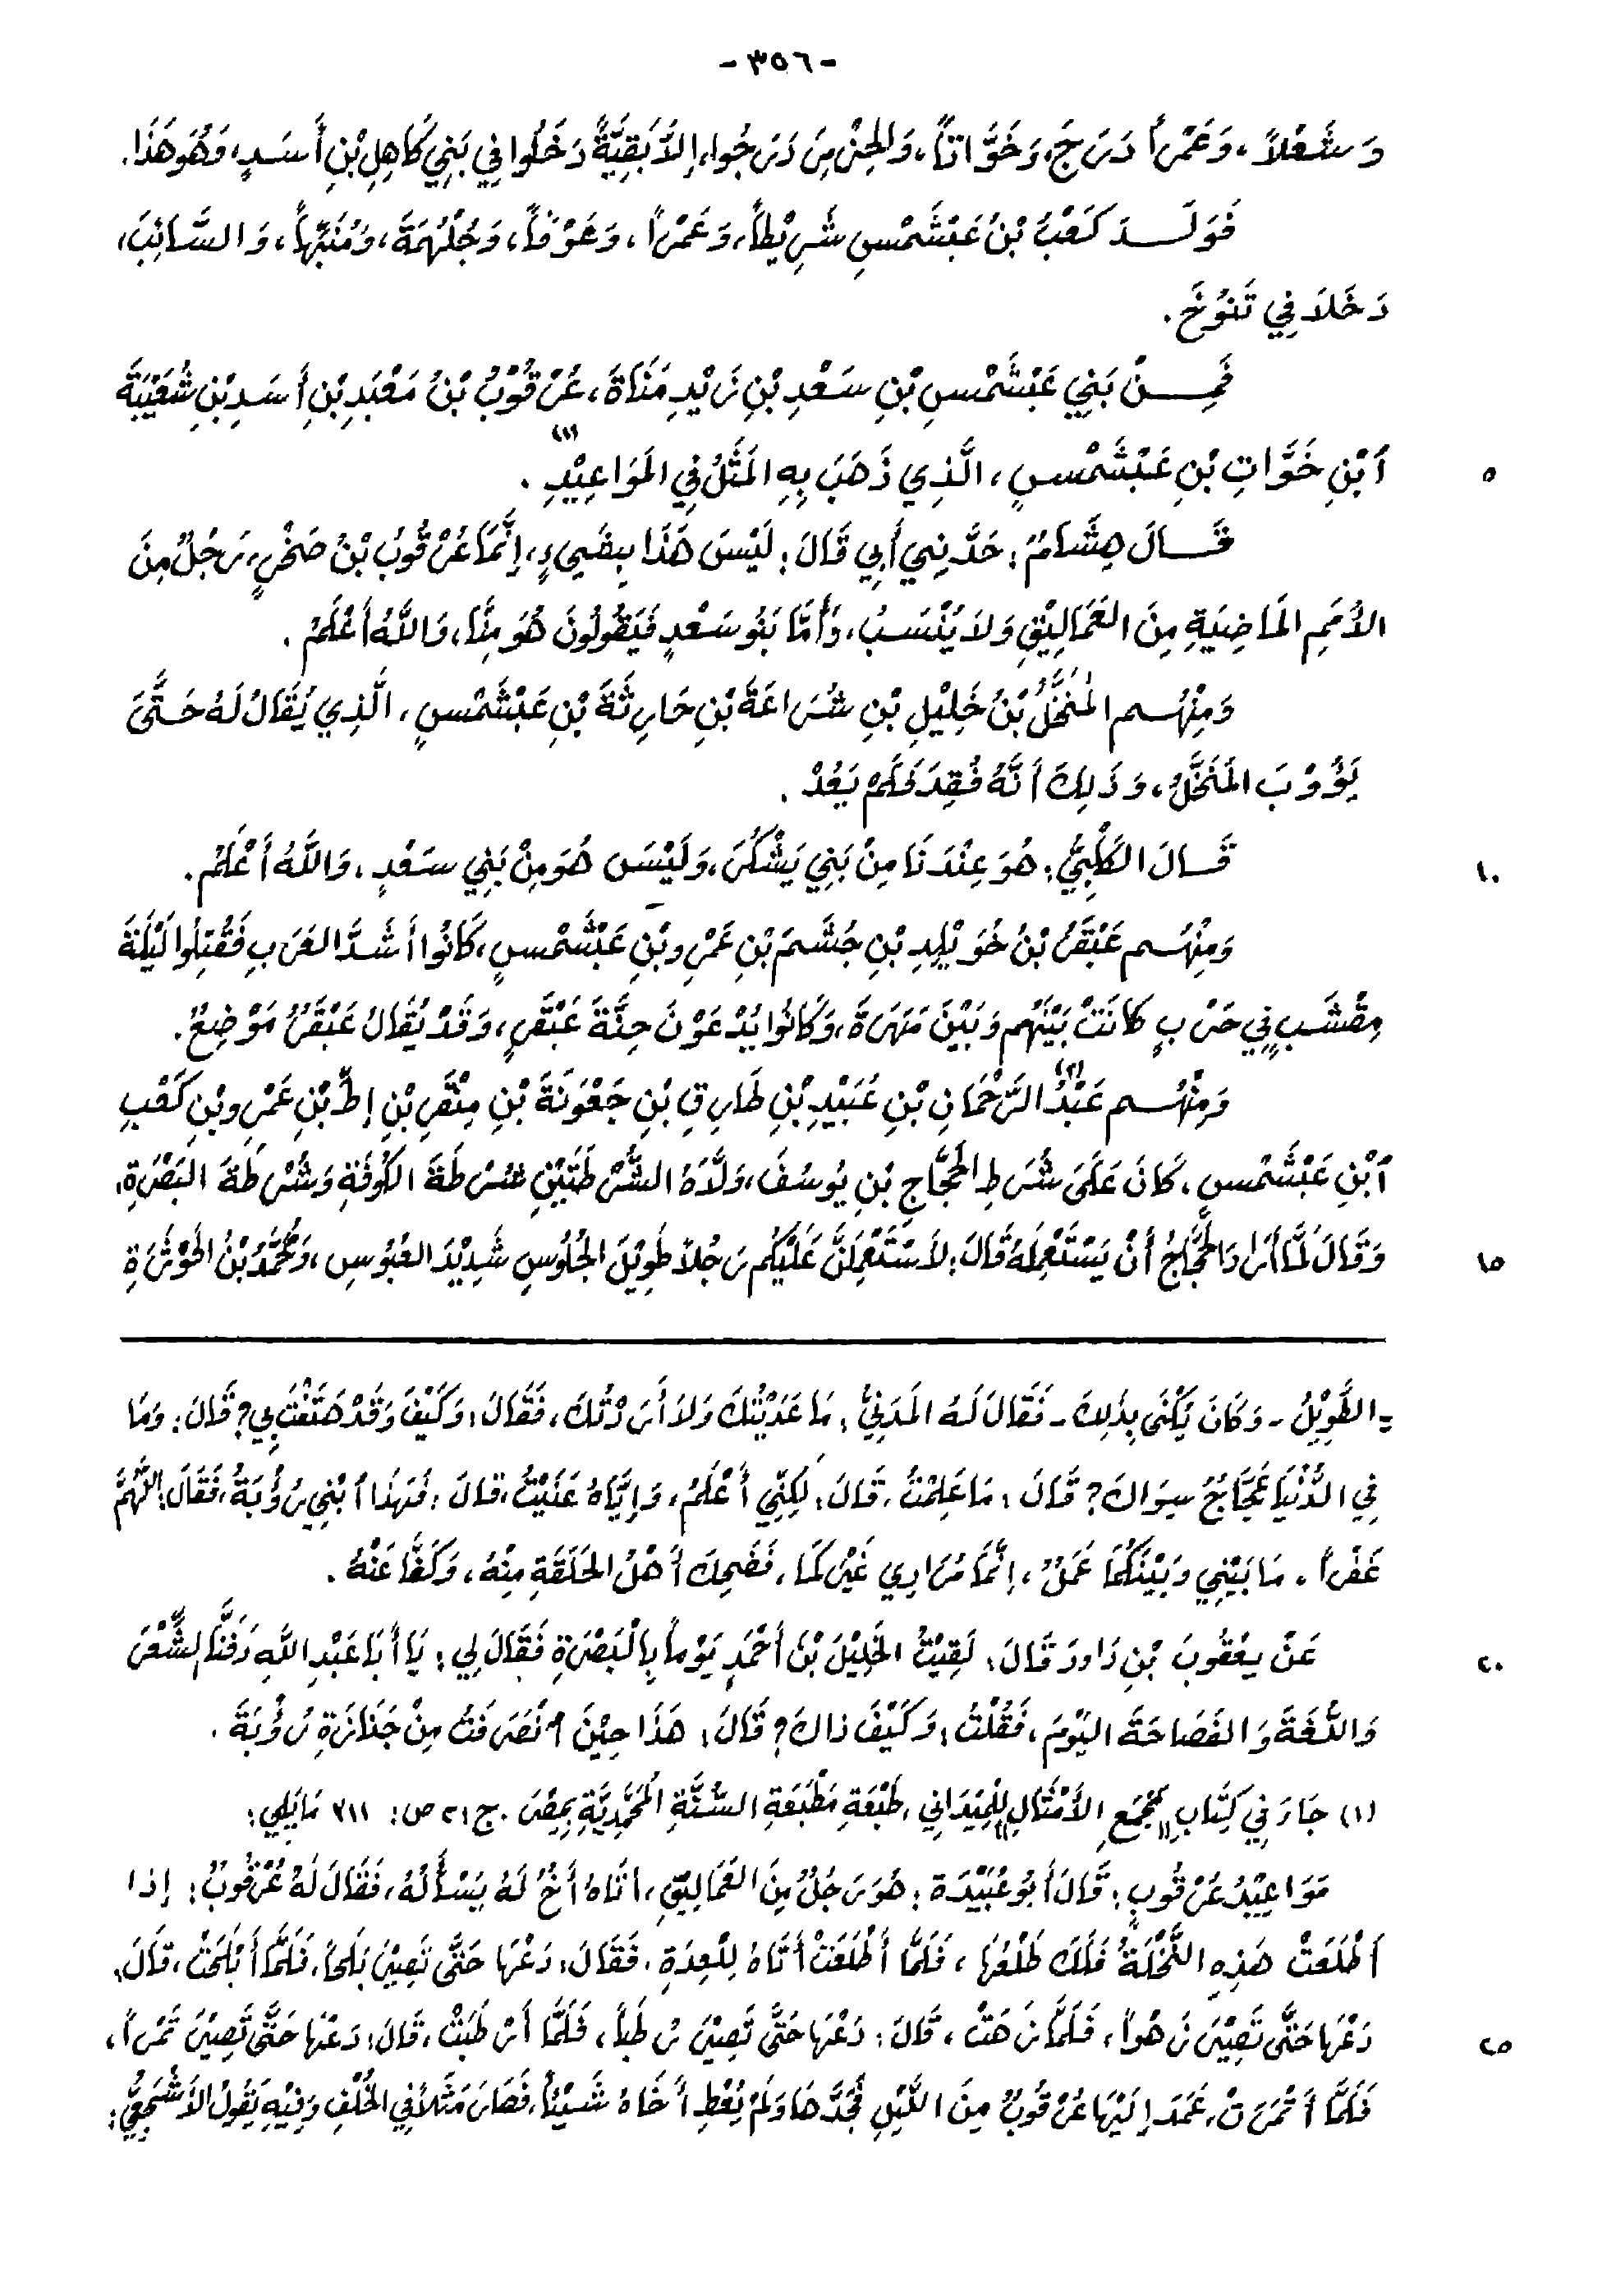 - ٣٥٦ -
وَشَعْلاً، وَعَمْراً دَرَجَ، وَخَوَّاتاً، وَالحِرْمِسَ دَرَجُوا، إِلاَّ بَقِيَّةً دَخَلُوا فِي بَنِي كَاهِلِ بْنِ أَسَدٍ، وَهُوَ هَذَا.
فَوَلَـــدَ كَعْبُ بْنُ عَبْشَمْسٍ شَرِيْطاً، وَعَمْراً، وَعَوْفاً، وَجُلْهُمَةَ، وَمُنَبِّهاً، وَالسَّائِبَ،
دَخَلاَ فِي تَنُوْخَ.
فَمِـــنْ بَنِي عَبْشَمْسِ بْنِ سَعْدِ بْنِ زَيْدِ مَنَاةَ، عُرْقُوْبُ بْنُ مَعْبَدِ بْنِ أَسَدِ بْنِ شُعَيْبَةَ
٥ ٱبْنِ خَوَّاتِ بْنِ عَبْشَمْسٍ، الَّذِي ذَهَبَ بِهِ المَثَلُ فِي المَوَاعِيْدِ (١).
قَـــالَ هِشَامٌ: حَدَّثَنِي أَبِي قَالَ: لَيْسَ هَذَا بِشَيءٍ، إِنَّمَا عُرْقُوبُ بْنُ صَخْرٍ، رَجُلٌ مِنَ
الأُمَمِ المَاضِيَةِ مِنَ العَمَالِيْقِ وَلاَ يُنْسَبُ، وَأَمَّا بَنُو سَعْدٍ فَيَقُولُونَ هُوَ مِنَّا، وَاللَّهُ أَعْلَمُ.
وَمِنْهُـــم المُنَخَّلُ بْنُ خَلِيْلِ بْنِ شُرَاعَةَ بْنِ حَارِثَةَ بْنِ عَبْشَمْسٍ، الَّذِي يُقَالُ لَهُ حَتَّى
يَؤُوْبَ المُنَخَّلُ، وَذَلِكَ أَنَّهُ فُقِدَ فَلَمْ يَعُدْ.
١٠ قَـــالَ الكَلْبِيُّ: هُوَ عِنْدَنَا مِنْ بَنِي يَشْكُرَ، وَلَيْسَ هُوَ مِنْ بَنِي سَعْدٍ، وَاللَّهُ أَعْلَمُ.
وَمِنْهُـــم عَبْقَرُ بْنُ خُوَيْلِدِ بْنِ جُشَمَ بْنِ عَمْرِو بْنِ عَبْشَمْسٍ، كَانُوا أَشَدَّ العَرَبِ فَقُتِلُوا لَيْلَةَ
مِقْشَبٍ فِي حَرْبٍ كَانَتْ بَيْنَهُم وَبَيْنَ مَهَرَةَ، وَكَانُوا يُدْعَوْنَ جِنَّةَ عَبْقَرٍ، وَقَدْ يُقَالُ عَبْقَرُ مَوْضِعٌ.
وَمِنْهُـــم عَبْدُ (٢) الرَّحْمَانِ بْنِ عُبَيْدِ بْنِ طَارِقِ بْنِ جَعْوَنَةَ بْنِ مِنْقَرِ بْنِ إِطِّ بْنِ عَمْرِو بْنِ كَعْبِ
ٱبْنِ عَبْشَمْسٍ، كَانَ عَلَى شُرَطِ الحَجَّاجِ بْنِ يُوسُفَ، وَلاَّهُ الشُّرْطَتَيْنِ شُرْطَةَ الكُوفَةِ وَشُرْطَةَ البَصْرَةِ،
١٥ وَقَالَ لَمَّا أَرَادَ الحَجَّاجُ أَنْ يَسْتَعْمِلَهُ قَالَ: لأَسْتَعْمِلَنَّ عَلَيْكُم رَجُلاً طَوِيْلَ الجُلُوْسِ شَدِيْدَ العُبُوْسِ، وَمُحَمَّدُ بْنُ الحَوْثَرَةِ
= الطَّوِيْلُ - وَكَانَ يُكْنَى بِذَلِكَ - فَقَالَ لَهُ المَدَنِيُّ: مَا عَدَيْتُكَ وَلاَ أَرَدْتُكَ، فَقَالَ: وَكَيْفَ وَقَدْ هَتَفْتَ بِي؟ قَالَ: وَمَا
فِي الدُّنْيَا عَجَّاجٌ سِوَاكَ؟ قَالَ: مَا عَلِمْتُ، قَالَ: لَكِنِّي أَعْلَمُ، وَإِيَّاهُ عَنَيْتُ، قَالَ: فَهَذَا ٱبْنِي رُؤْبَةُ، فَقَالَ: اللَّهُمَّ
غَفْراً، مَا بَيْنِي وَبَيْنَكُمَا عَمَلٌ، إِنَّمَا مُرَادِي غَيْرُكُمَا، فَضَحِكَ أَهْلُ الحَلَقَةِ مِنْهُ، وَكَفَّا عَنْهُ.
٢٠ عَنْ يَعْقُوبَ بْنِ دَاودَ قَالَ: لَقِيْتُ الخَلِيْلَ بْنَ أَحْمَدٍ يَوْماً بِالْبَصْرَةِ فَقَالَ لِي: يَا أَبَا عَبْدِ اللَّهِ دَفَنَّا الشِّعْرَ
وَاللُّغَةَ وَالفَصَاحَةَ اليَوْمَ، فَقُلْتُ: وَكَيْفَ ذَاكَ؟ قَالَ: هَذَا حِيْنَ ٱنْصَرَفْتُ مِنْ جَنَازَةِ رُؤْبَةَ.
(١) جَاءَ فِي كِتَابِ "مَجْمَعِ الأَمْثَالِ لِلْمِيْدَانِي" طَبْعَةِ مَطْبَعَةِ السُّنَّةِ المُحَمَّدِيَّةِ بِمِصْرَ. ج: ٢ ص: ٣١١ مَا يَلِي:
مَوَاعِيْدُ عُرْقُوبٍ: قَالَ أَبُو عُبَيْدَة: هُوَ رَجُلٌ مِنَ العَمَالِيْقِ، أَتَاهُ أَخٌ لَهُ يَسْأَلُهُ، فَقَالَ لَهُ عُرْقُوبٌ: إذا
أَطْلَعَتْ هَذِهِ النَّخْلَةُ فَلَكَ طَلْعُهَا، فَلَمَّا أَطْلَعَتْ أَتَاهُ لِلْعِدَةِ، فَقَالَ: دَعْهَا حَتَّى تَصِيْرَ بَلَحاً، فَلَمَّا أَبْلَحَتْ، قَالَ:
٢٥ دَعْهَا حَتَّى تَصِيْرَ زَهْواً، فَلَمَّا زَهَتْ، قَالَ: دَعْهَا حَتَّى تَصِيْرَ رُطَباً، فَلَمَّا أَرْطَبَتْ، قَالَ: دَعْهَا حَتَّى تَصِيْرَ تَمْراً،
فَلَمَّا أَتْمَرَتْ، عَمَدَ إِلَيْهَا عُرْقُوبٌ مِنَ اللَّيْلِ فَجَدَّهَا وَلَمْ يُعْطِ أَخَاهُ شَيْئاً، فَصَارَ مَثَلاً فِي الخُلْفِ وَفِيْهِ يَقُولُ الأَشْجَعِيُّ: